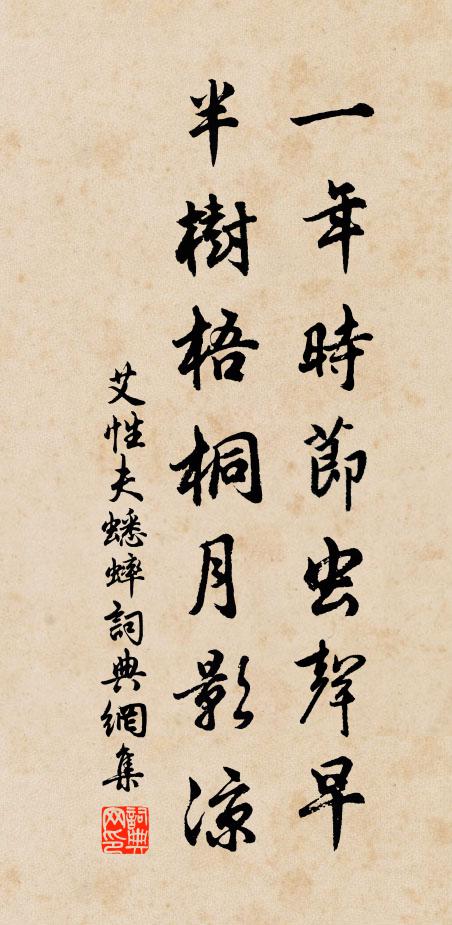 一年時節虫聲早
半樹梧桐月影涼
艾性夫蟋蟀詞典網集
詞典網印